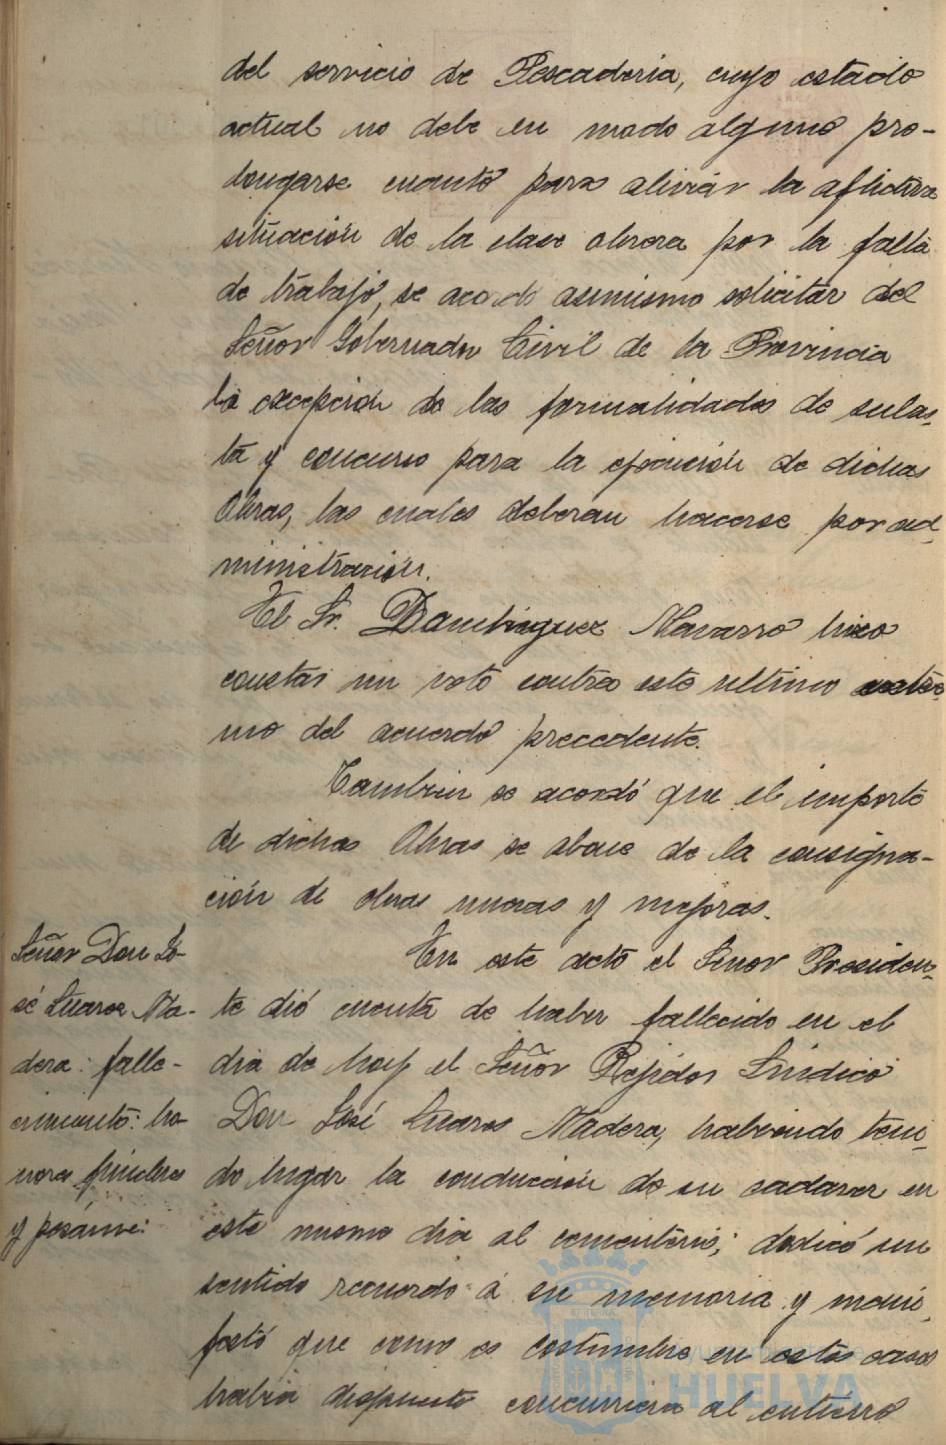 del servicio de Pescaderia, cuyo estado
actual no debe en modo alguno pro-
longarse cuanto para aliviar la aflictiva
situación de la clase obrera por la falta
de trabajo, se acordó asimismo solicitar del
Señor Gobernador Civil de la Provincia
la excepción de las formalidades de subas-
ta y concurso para la ejecución de dichas
Obras, las cuales deberan hacerse por ad-
ministración.
El Sr. Dominguez Navarro hizo
constar su voto contra este ultimo extre-
mo del acuerdo precedente.
Tambien se acordó que el importe
de dichas Obras se abone de la consigna-
ción de obras nuevas y mejoras.
Señor Don Jo-
sé Suarez Ma-
dera: falle-
cimiento: ho-
nores fúnebres
y pésame:
En este acto el Señor Presiden-
te dió cuenta de haber fallecido en el
dia de hoy el Señor Rejidor Sindico
Don José Suares Madera, habiendo teni-
do lugar la conducción de su cadaver en
este mismo dia al cementerio; dedicó un
sentido recuerdo á su memoria y mani-
festó que como es costumbre en estos casos
habia dispuesto concurriera al entierro
HUELVA